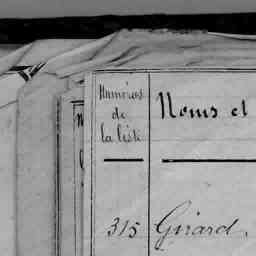 Numéros
de
la liste
Noms et
315 Girard,